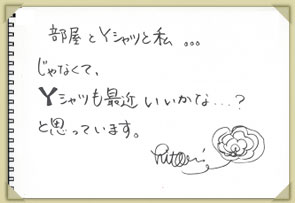 部屋とYシャツと私 。。。
じゃなくて、
Yシャツも最近いいかな…?
と思っています。